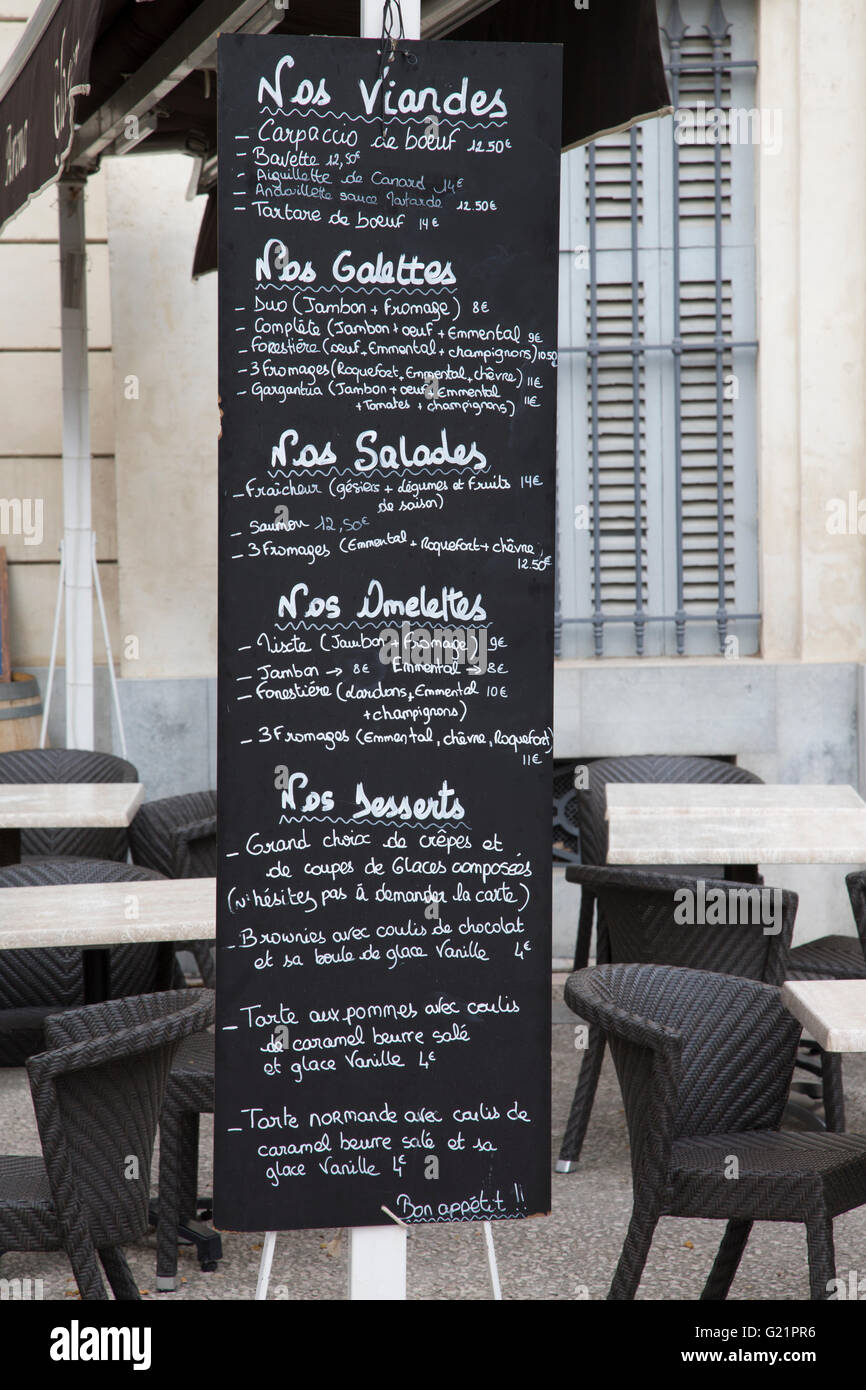 Nos Viandes
- Carpaccio de boeuf 12.50€
- Bavette 12,50€
- Aiguillette de Canard 14€
- Andouillette sauce Tartare 12.50€
- Tartare de boeuf 14€
Nos Galettes
- Duo (Jambon + fromage) 8€
- Complète (Jambon + oeuf + Emmental 9€
- Forestière (oeuf, Emmental + champignons) 10.50
- 3 Fromages (Roquefort, Emmental, chèvre) 11€
- Gargantua (Jambon + oeuf + Emmental
+ Tomates + champignons) 11€
Nos Salades
- Fraîcheur (gésiers + légumes et fruits 14€
de saison)
- Saumon 12,50€
- 3 Fromages (Emmental + Roquefort + chèvre
12.50€
Nos Omelettes
- Mixte (Jambon + Fromage) 9€
- Jambon → 8€ Emmental → 8€
- Forestière (Lardons, Emmental 10€
+ champignons)
- 3 Fromages (Emmental, chèvre, Roquefort)
11€
Nos Desserts
- Grand choix de crêpes et
de coupes de Glaces composées
(N'hésitez pas à demander la carte)
- Brownies avec coulis de chocolat
et sa boule de glace Vanille 4€
- Tarte aux pommes avec coulis
de caramel beurre salé
et glace Vanille 4€
- Tarte normande avec coulis de
caramel beurre salé et sa
glace Vanille 4€
Bon appétit !!
alamy
a
Image ID: G21PR6
www.alamy.com